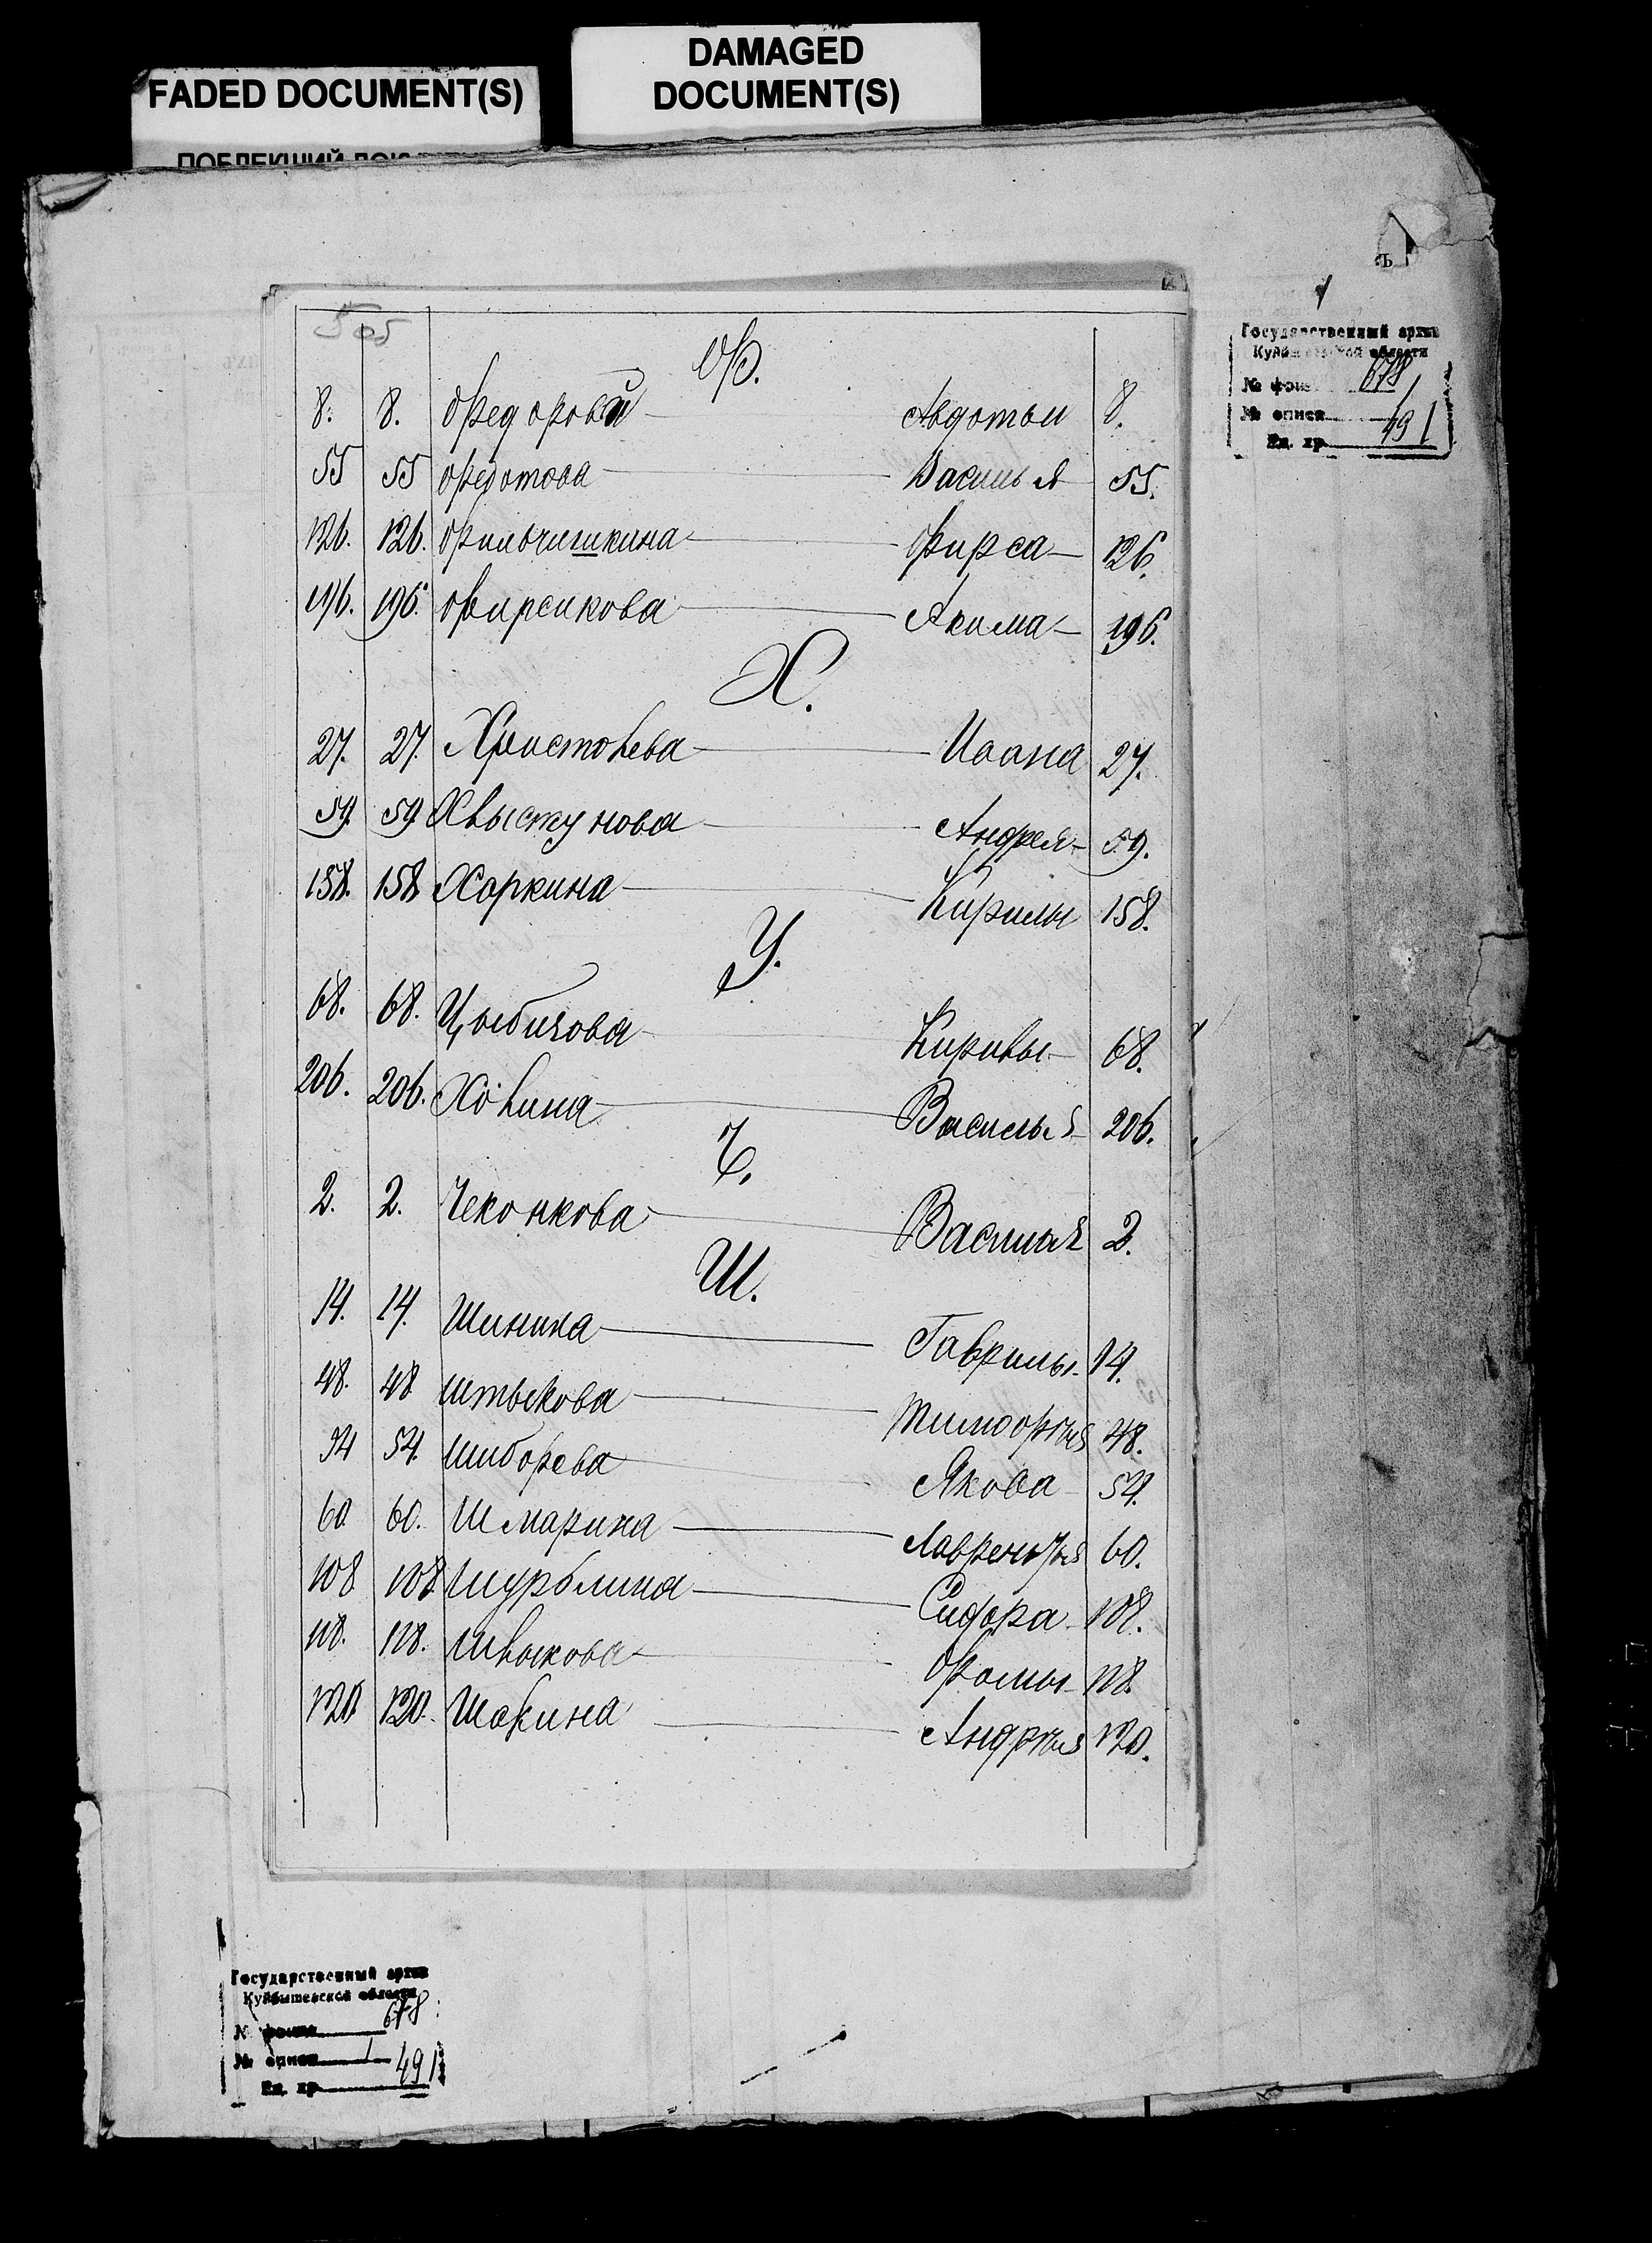 FADED DOCUMENT(S)
DAMAGED
DOCUMENT(S)
5 об
Государственный архив
Куйбышевской области
№ фонда 678
№ описи 1
Ед. хр. 491
Ф.
8. 8. Федоровой Авдотьи 8.
55 55 Федотова Василья 55.
126. 126. Фильчишкина Фирса 126.
196. 196. Фирсикова Акима 196.
Х.
27. 27. Христолева Иоана 27.
59. 59 Хвыстунова Андрея 59.
158. 158 Харкина Кирилы 158.
Ц.
68. 68. Цыбизова Кирилы 68.
206. 206. Василья 206.
Ч.
2. 2. Чеконкова Василья 2.
Ш.
14. 14. Шинина Гаврилы 14.
48. 48 Штыкова Тимофѣя 48.
54 54. Шиборева Якова 54.
60 60. Шмарина Лаврентья 60.
108 108 Шурблина Сидора 108.
118. 118. Швыкова Фомы 118.
120 120. Шокина Андрѣя 120.
Государственный архив
Куйбышевской области
№ фонда 678
№ описи 1
Ед. хр. 491